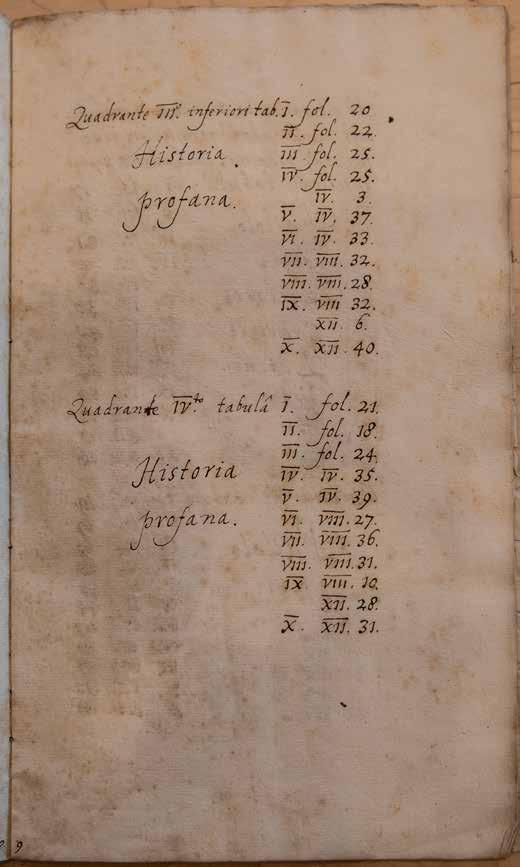 Quadrante III.º inferiori tab. I. fol. 20
II. fol. 22.
Historia III. fol. 25.
IV. fol. 25.
IV. 3.
profana. V. IV. 37.
VI. IV. 33.
VII. VIII. 32.
VIII. VIII. 28.
IX. VIII 32.
XII. 6.
X. XII. 40.
Quadrante IV.to tabulâ I. fol. 21.
II. fol. 18.
III. fol. 24.
Historia IV. IV. 35.
V. IV. 39.
profana. VI. VIII. 27.
VII. VIII. 36.
VIII. VIII. 31.
IX VIII. 10.
XII. 28.
X. XII. 31.
9